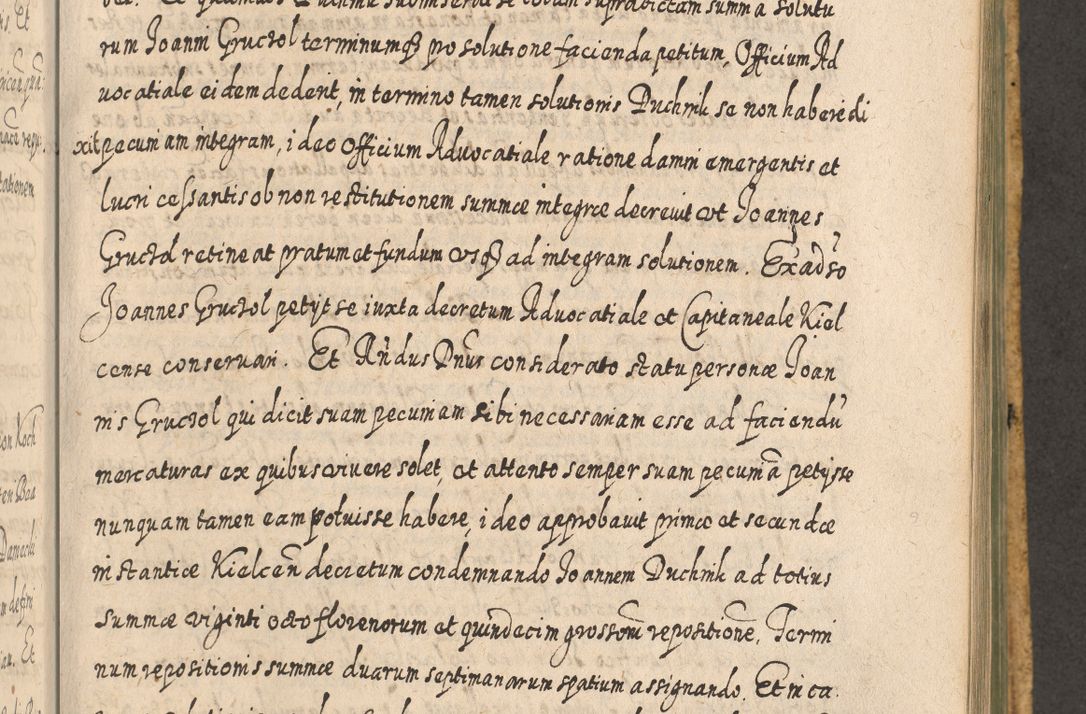 rum Joanni Gructol terminumq3 po solutione facienda petitum, Officium Ad
uocatiale eidem dederit, in termino tamen solutionis Duchnik se non habere di
xit pecuniam integram, ideo Officium Aduocatiale ratione damni emergentis et
lucri cessantis ob non restitutionem summæ integræ decreuit vt Joannes
Gructol retineat pratum et fundum vsq3 ad integram solutionem. Ex aduso
Joannes Gructol petijt se iuxta decretum Aduocatiale et Capitaneale Kiel
cense conseruari. Et Rñdus Dnus considerato statu personæ Joan
nis Gructol qui dicit suam pecuniam sibi necessariam esse ad faciendū
mercaturas ex quibus viuere solet, et attento semper suam pecuniā petijsse
nunquam tamen eam potuisse habere, ideo approbauit primæ et secundæ
instantiæ Kielceñ decretum condemnando Joannem Duchnik ad totius
summæ viginti octo florenorum et quindecim grossorū repositionē. Termi
num repositionis summæ duarum septimanarum spatium assignando. Et in ca